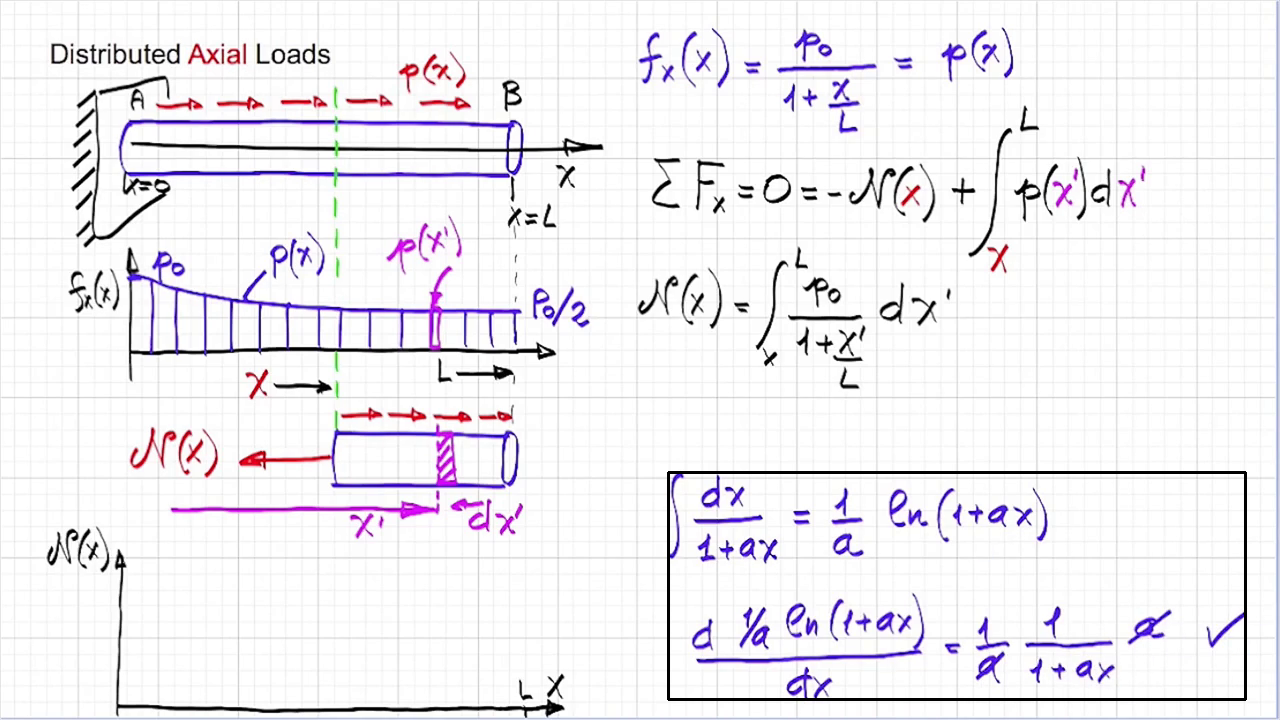 Distributed Axial Loads
p(x)
A
B
x=0
x
x=L
fx(x)
p0
p(x)
p(x')
P0/2
x
L
N(x)
x'
dx'
N(x)
L
x
fx(x) = p0 / (1 + x/L) = p(x)
ΣFx = 0 = -N(x) + ∫_x^L p(x')dx'
N(x) = ∫_x^L p0 / (1 + x'/L) dx'
∫ dx / (1+ax) = 1/a ln(1+ax)
d 1/a ln(1+ax) / dx = 1/a 1/(1+ax) a ✓